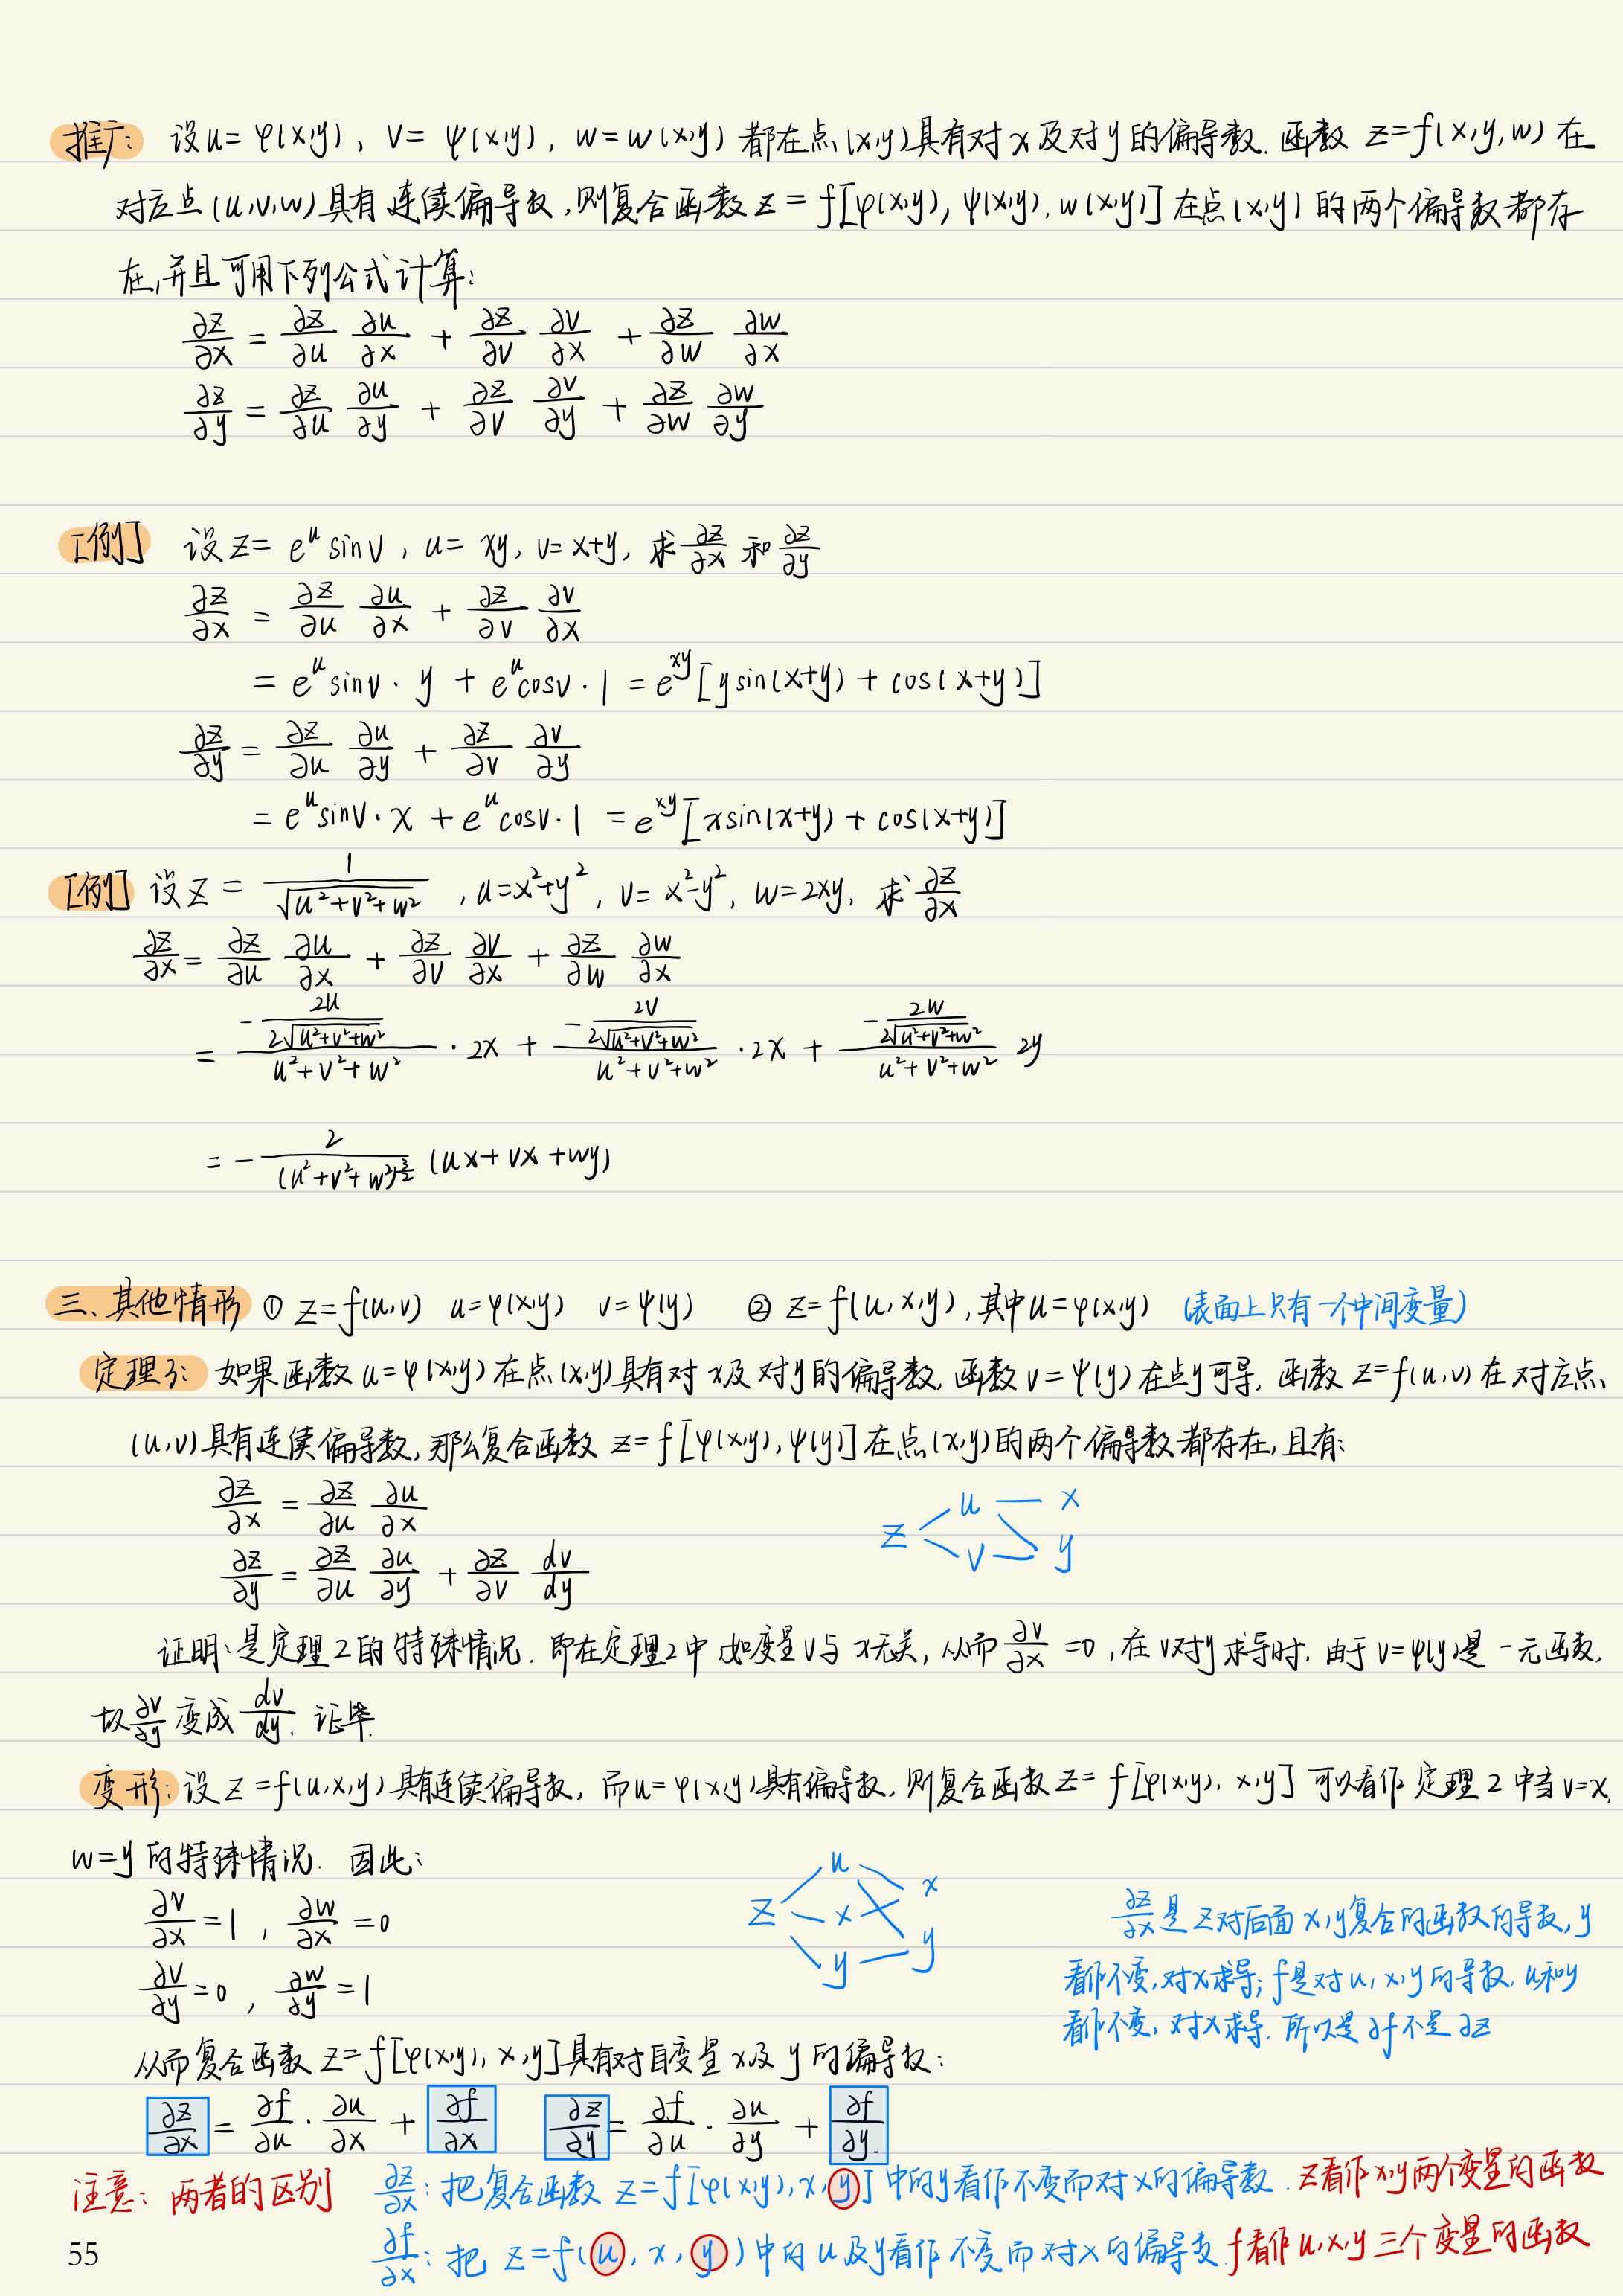 推广: 设u= φ(x,y), v= ψ(x,y), w=w(x,y) 都在点(x,y)具有对x及对y的偏导数. 函数 z=f(x,y,w) 在
对应点(u,v,w)具有连续偏导数,则复合函数z= f[φ(x,y), ψ(x,y), w(x,y)] 在点(x,y)的两个偏导数都存
在,并且可用下列公式计算:
∂z/∂x = ∂z/∂u ∂u/∂x + ∂z/∂v ∂v/∂x + ∂z/∂w ∂w/∂x
∂z/∂y = ∂z/∂u ∂u/∂y + ∂z/∂v ∂v/∂y + ∂z/∂w ∂w/∂y
[例] 设z= e^u sinv, u= xy, v=x+y, 求∂z/∂x 和 ∂z/∂y
∂z/∂x = ∂z/∂u ∂u/∂x + ∂z/∂v ∂v/∂x
= e^u sinv · y + e^u cosv · 1 = e^xy [ysin(x+y) + cos(x+y)]
∂z/∂y = ∂z/∂u ∂u/∂y + ∂z/∂v ∂v/∂y
= e^u sinv · x + e^u cosv · 1 = e^xy [xsin(x+y) + cos(x+y)]
[例] 设z = 1/√(u²+v²+w²), u=x²+y², v=x²-y², w=2xy, 求∂z/∂x
∂z/∂x = ∂z/∂u ∂u/∂x + ∂z/∂v ∂v/∂x + ∂z/∂w ∂w/∂x
= (-2u/(2√(u²+v²+w²)))/(u²+v²+w²) · 2x + (-2v/(2√(u²+v²+w²)))/(u²+v²+w²) · 2x + (-2w/(2√(u²+v²+w²)))/(u²+v²+w²) 2y
= - 2/(u²+v²+w²)^(3/2) (ux+vx+wy)
三、其他情形 ① z=f(u,v) u=φ(x,y) v=ψ(y) ② z=f(u,x,y),其中u=φ(x,y) (表面上只有一个中间变量)
定理3: 如果函数u=φ(x,y)在点(x,y)具有对x及对y的偏导数,函数v=ψ(y)在点y可导, 函数z=f(u,v)在对应点
(u,v)具有连续偏导数,那么复合函数 z=f[φ(x,y),ψ(y)]在点(x,y)的两个偏导数都存在,且有:
∂z/∂x = ∂z/∂u ∂u/∂x
z u x
v y
∂z/∂y = ∂z/∂u ∂u/∂y + ∂z/∂v dv/dy
证明:是定理2的特殊情况. 即在定理2中 如变量v与x无关, 从而∂v/∂x =0, 在v对y求导时, 由于v=ψ(y)是一元函数,
故∂v/∂y 变成 dv/dy. 证毕.
变形: 设z=f(u,x,y)具有连续偏导数, 而u=φ(x,y)具有偏导数, 则复合函数z= f[φ(x,y), x,y] 可以看作定理2中当v=x,
w=y的特殊情况. 因此:
∂v/∂x =1, ∂w/∂x =0
∂v/∂y =0, ∂w/∂y =1
u
z x x
y y
∂z/∂x 是z对后面x,y复合的函数的导数,y
看作不变,对x求导; f是对u,x,y的导数, u和y
看作不变, 对x求导. 所以是∂f不是∂z
从而复合函数 z=f[φ(x,y), x,y]具有对自变量x及y的偏导数:
∂z/∂x = ∂f/∂u · ∂u/∂x + ∂f/∂x ∂z/∂y = ∂f/∂u · ∂u/∂y + ∂f/∂y.
注意: 两者的区别 ∂z/∂x: 把复合函数 z=f[φ(x,y),x,y]中的y看作不变而对x的偏导数. z看作x,y两个变量的函数
∂f/∂x: 把 z=f(u,x,y)中的u及y看作不变而对x的偏导数. f看作u,x,y三个变量的函数
55